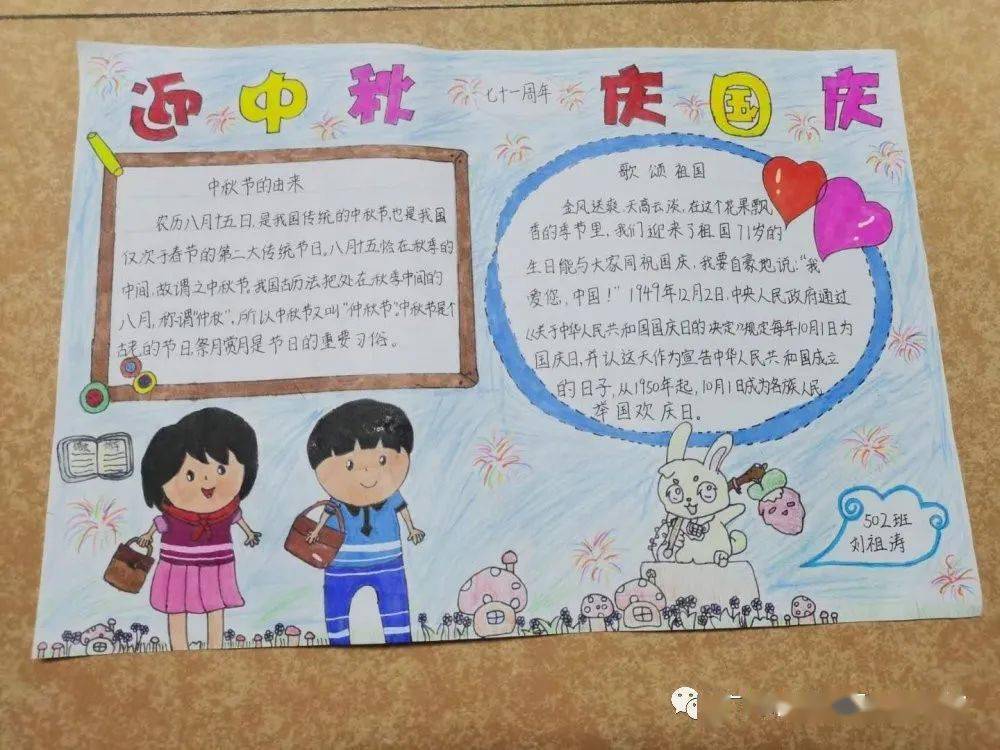 迎中秋 七十一周年 庆国庆
中秋节的由来
农历八月十五日,是我国传统的中秋节,也是我国
仅次于春节的第二大传统节日。八月十五恰在秋季的
中间,故谓之中秋节。我国古历法把处在秋季中间的
八月,称谓“仲秋”,所以中秋节又叫“仲秋节”。中秋节是个
古老的节日,祭月赏月是节日的重要习俗。
歌颂祖国
金风送爽,天高云淡,在这个花果飘
香的季节里,我们迎来了祖国71岁的
生日能与大家同祝国庆,我要自豪地说:“我
爱您,中国!”1949年12月2日,中央人民政府通过
《关于中华人民共和国国庆日的决定》规定每年10月1日为
国庆日,并认这天作为宣告中华人民共和国成立
的日子,从1950年起,10月1日成为各族人民
举国欢庆日。
502班
刘祖涛